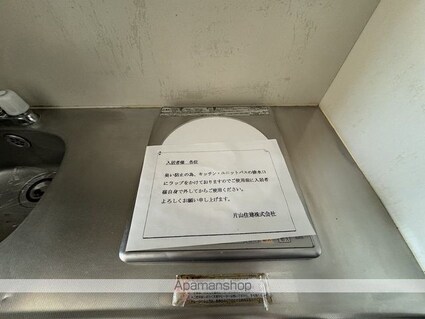 入居者様 各位
臭い防止の為、キッチン・ユニットバスの排水口
にラップをかけておりますのでご使用前に入居者
様自身で外してからご使用ください。
よろしくお願い申し上げます。
片山住建株式会社
Apamanshop